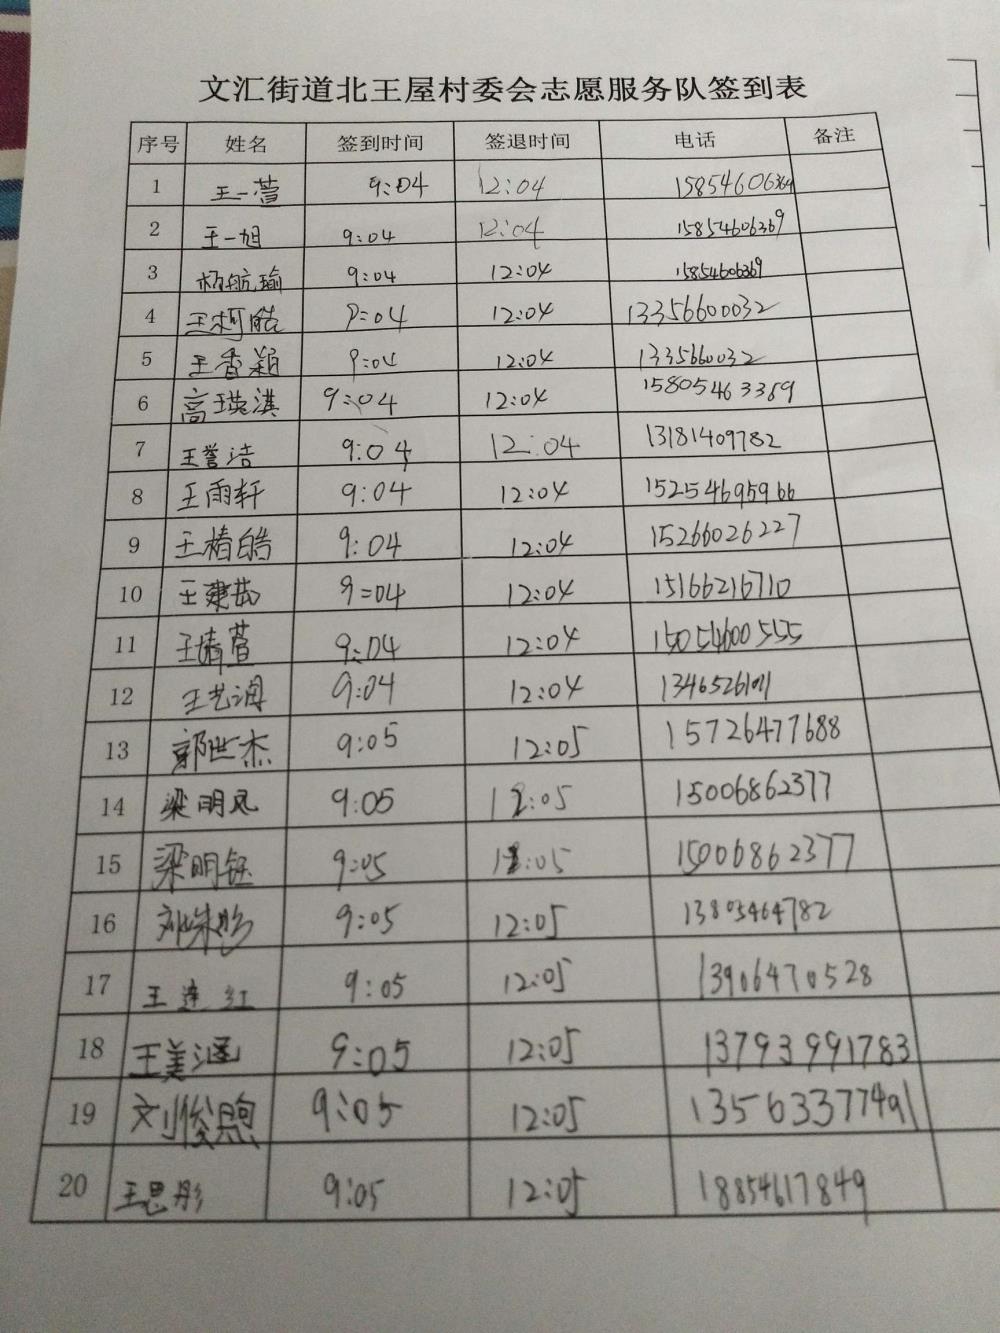 文汇街道北王屋村委会志愿服务队签到表
序号 姓名 签到时间 签退时间 电话 备注
1 王一萱 9:04 12:04 15854606369
2 王一旭 9:04 12:04 15854606369
3 杨航瑜 9:04 12:04 15854606369
4 王柯皓 9:04 12:04 13356600032
5 王香颖 9:04 12:04 1335660032
6 高瑛淇 9:04 12:04 15805463369
7 王誉洁 9:04 12:04 13181409782
8 王雨轩 9:04 12:04 15254695966
9 王椿皓 9:04 12:04 15266026227
10 王建茹 9:04 12:04 15166216710
11 王婧萱 9:04 12:04 15054600555
12 王艺润 9:04 12:04
13 郭世杰 9:05 12:05 15726477688
14 梁明凤 9:05 12:05 15006862377
15 梁明钰 9:05 12:05 15006862377
16 9:05 12:05 13805464782
17 王连红 9:05 12:05 13906470528
18 王美涵 9:05 12:05 13793991783
19 刘俊煦 9:05 12:05 13563377491
20 王思彤 9:05 12:05 18854617849